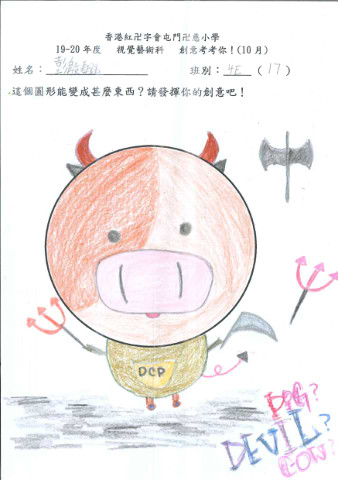 香港紅卍字會屯門卍慈小學
19-20年度 視覺藝術科 創意考考你！(10月)
姓名： 班別：4E （17）
這個圖形能變成甚麼東西？請發揮你的創意吧！
DCP
PIG?
DEVIL?
COW?